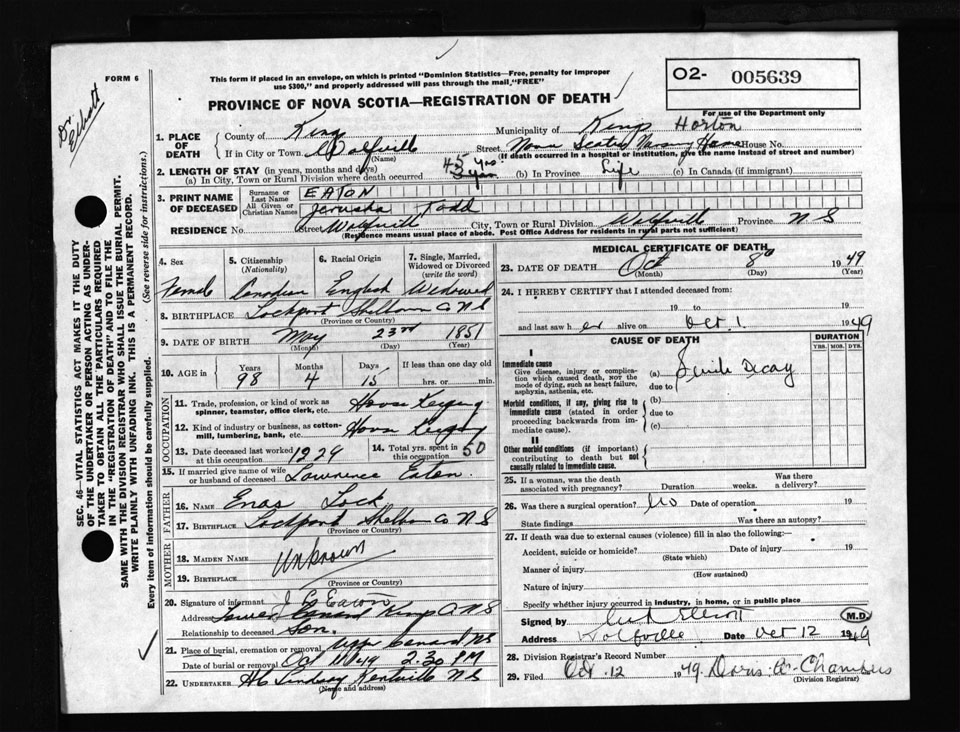 FORM 6
Dr. Elliott
This form if placed in an envelope, on which is printed "Dominion Statistics—Free, penalty for improper
use $300," and properly addressed will pass through the mail "FREE"
PROVINCE OF NOVA SCOTIA—REGISTRATION OF DEATH
O2- 005639
For use of the Department only
1. PLACE OF DEATH
County of Kings Municipality of Kings Horton
If in City or Town Wolfville Street Nova Scotia Nursing Home House No.
(Name) (If death occurred in a hospital or institution, give the name instead of street and number)
2. LENGTH OF STAY (in years, months and days)
(a) In City, Town or Rural Division where death occurred 45 yrs (b) In Province Life (c) In Canada (if immigrant)
3. PRINT NAME OF DECEASED
Surname or Last Name EATON
All Given or Christian Names Jerusha Todd
RESIDENCE No. Street Wolfville City, Town or Rural Division Wolfville Province N S
(Residence means usual place of abode. Post Office Address for residents in rural parts not sufficient)
4. Sex Female
5. Citizenship (Nationality) Canadian
6. Racial Origin English
7. Single, Married, Widowed or Divorced (write the word) Widowed
8. BIRTHPLACE Lockport Shelburn Co N S
(Province or Country)
9. DATE OF BIRTH May 23rd 1851
(Month) (Day) (Year)
10. AGE in Years 98 Months 4 Days 15 If less than one day old hrs. or min.
OCCUPATION
11. Trade, profession, or kind of work as spinner, teamster, office clerk, etc. House Keeping
12. Kind of industry or business, as cotton-mill, lumbering, bank, etc. House Keeping
13. Date deceased last worked at this occupation 1929
14. Total yrs. spent in this occupation 50
15. If married give name of wife or husband of deceased Lawrence Eaton.
FATHER
16. NAME Enos Lock
17. BIRTHPLACE Lockport Shelburn Co N S
(Province or Country)
MOTHER
18. MAIDEN NAME Unknown
19. BIRTHPLACE
(Province or Country)
20. Signature of informant J E Eaton
Address Lower Canard Kings Co. N S
Relationship to deceased Son.
21. Place of burial, cremation or removal Upper Canard NS
Date of burial or removal Oct 11 49 2.30 PM
22. UNDERTAKER Lindsay Kentville N S
(Name and address)
MEDICAL CERTIFICATE OF DEATH
23. DATE OF DEATH Oct 8 1949
(Month) (Day) (Year)
24. I HEREBY CERTIFY that I attended deceased from:
19 to 19
and last saw her alive on Oct. 1. 1949
CAUSE OF DEATH
DURATION
YRS. MOS. DYS.
I
Immediate cause
Give disease, injury or complication which caused death, NOT the mode of dying, such as heart failure, asphyxia, asthenia, etc.
(a) Senile Decay
due to
Morbid conditions, if any, giving rise to immediate cause (stated in order proceeding backwards from immediate cause).
(b)
due to
(c)
II
Other morbid conditions (if important) contributing to death but not causally related to immediate cause.
25. If a woman, was the death associated with pregnancy? Duration weeks. Was there a delivery?
26. Was there a surgical operation? No Date of operation 19
State findings Was there an autopsy?
27. If death was due to external causes (violence) fill in also the following:—
Accident, suicide or homicide? Date of injury 19
(State which)
Manner of injury
(How sustained)
Nature of injury
Specify whether injury occurred in industry, in home, or in public place
Signed by Elliott M.D.
Address Wolfville Date Oct 12 1949
28. Division Registrar's Record Number
29. Filed Oct. 12 1949. Doris Chambers
(Division Registrar)
SEC. 46—VITAL STATISTICS ACT MAKES IT THE DUTY
OF THE UNDERTAKER OR PERSON ACTING AS UNDER-
TAKER TO OBTAIN ALL THE PARTICULARS REQUIRED
IN THE "REGISTRATION OF DEATH" AND TO FILE THE
SAME WITH THE DIVISION REGISTRAR WHO SHALL ISSUE THE BURIAL PERMIT.
WRITE PLAINLY WITH UNFADING INK. THIS IS A PERMANENT RECORD.
Every item of information should be carefully supplied. (See reverse side for instructions.)